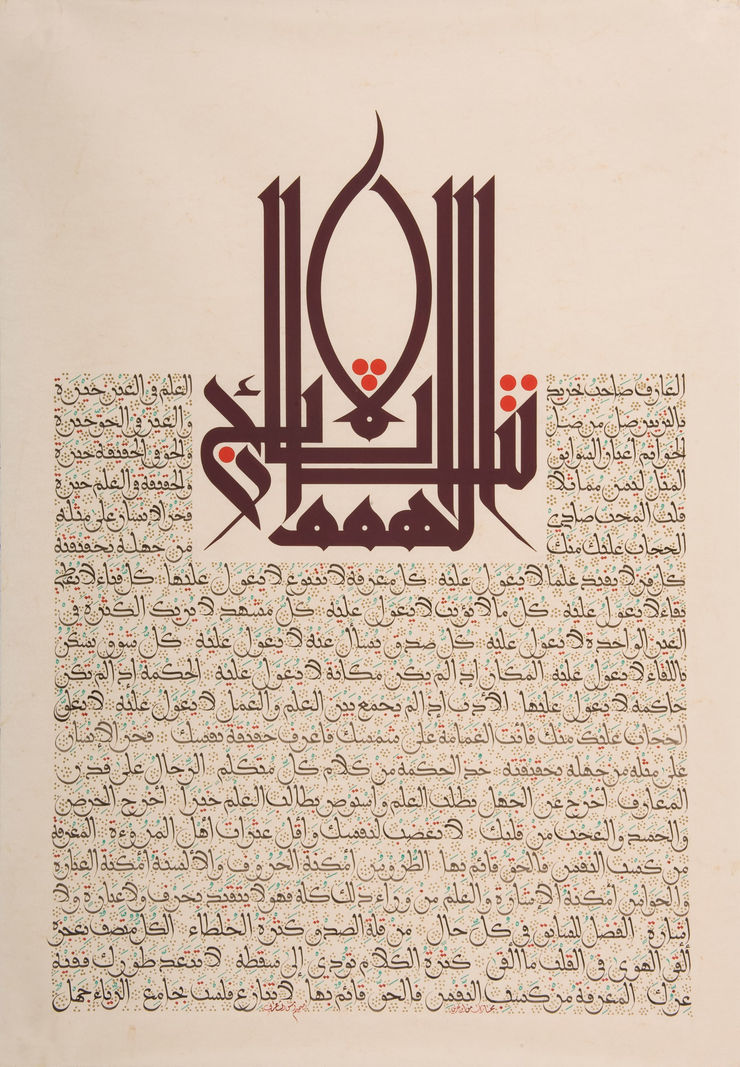 العارف صاحب تجريد
بالتزيين ضل من ضل
السوابق
المحب صادي
الحجاب عليك منك
العلم في العين حيرة
والعين في الحق حيرة
الحق في الحقيقة حيرة
الحقيقة في العلم حيرة
فخر الإنسان على مثله
من جهله بحقيقته
كل فن لا يفيد علما لا يعول عليه كل معرفة لا تتنوع لا يعول عليها كل فناء لا يعطي
بقاء لا يعول عليه كل ما لا لا يعول عليه كل مشهد لا يريك الكثرة في
العين الواحدة لا يعول عليه كل صدق يسأل عنه لا يعول عليه كل شوق يسكن
باللقاء لا يعول عليه المكان إذا لم يكن مكانة لا يعول عليه الحكمة إذا لم يكن
حاكمة لا يعول عليها الأدب إذا لم يجمع بين العلم والعمل لا يعول عليه
الحجاب عليك منك فأنت الغمامة على شمسك فاعرف حقيقة نفسك فخر الإنسان
على مثله من جهله بحقيقته خذ الحكمة من كلام كل متكلم الرجال على قدر
المعارف أخرج عن الجهل بطلب العلم واستوص بطالب العلم خيرا أخرج الحرص
والحسد والعجب من قلبك لا تغضب لنفسك وأقل عثرات أهل المروءة المعرفة
من كسب النفس فالحق قائم بها أمكنة الحروف والألسنة أمكنة العبارة
والخواطر أمكنة الإشارة والعلم من وراء ذلك كله فهو لا يتقيد بحرف ولا عبارة ولا
إشارة الفضل للسابق في كل حال من قلة الصدق كثرة الخلطاء الكل متصف بعجزه
ألقى الهوى في القلب ما ألقى كثرة الكلام تؤدي إلى سقطة لا تتعد طورك ففيه
عزك المعرفة من كسب النفس فالحق قائم بها لا تنازع فلست بجامع الرياء